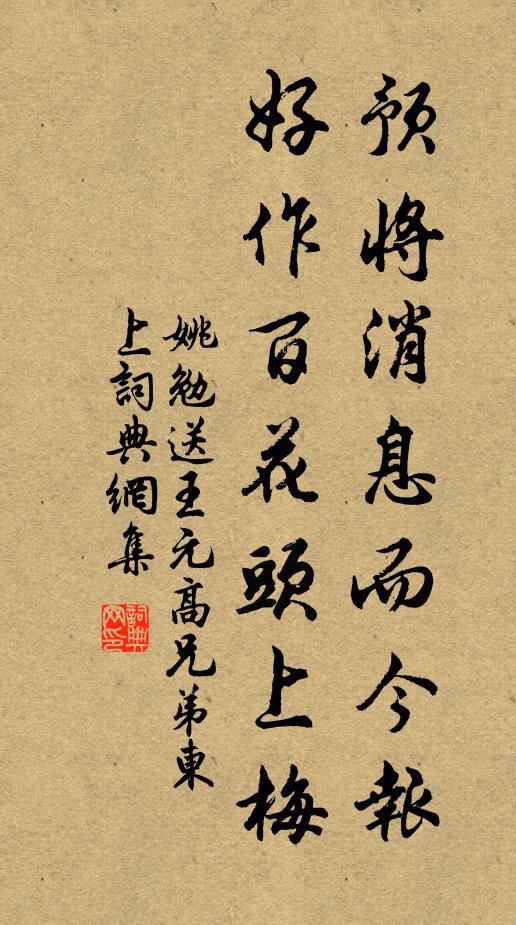 預將消息而今報
好作百花頭上梅
姚勉送王元高兄弟東
上詞典網集
詞典網印